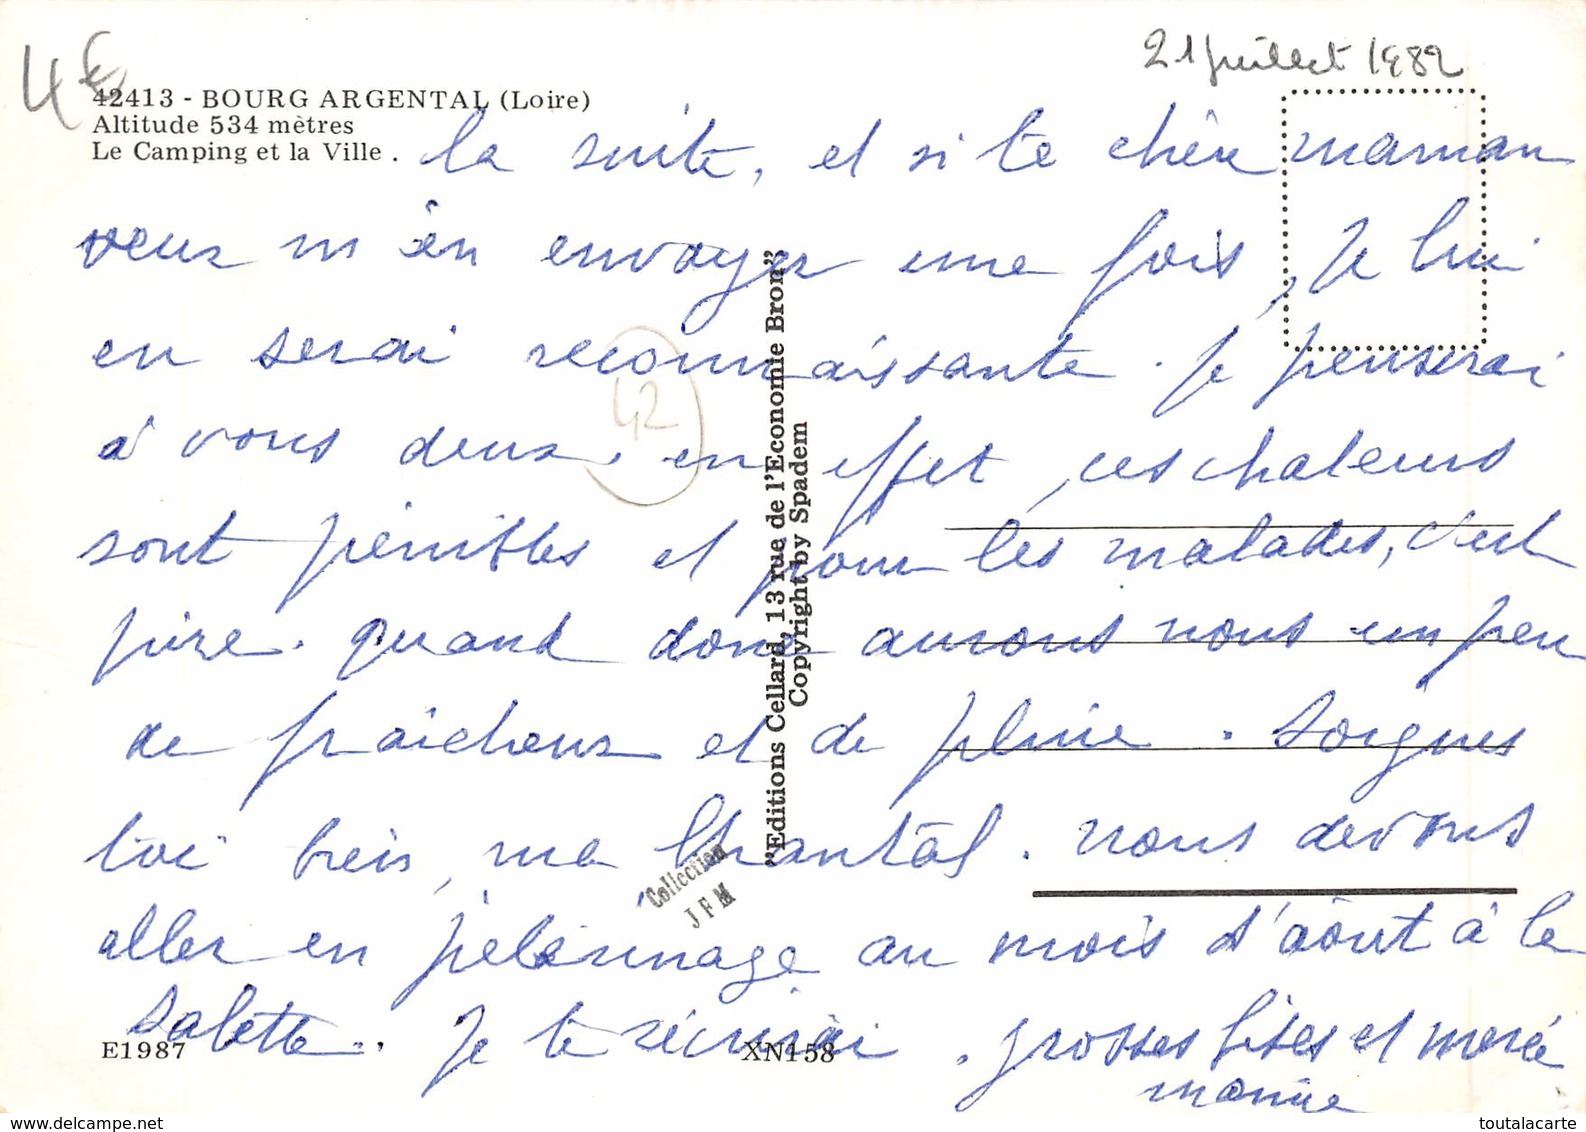 21 juillet 1982
4€
42413 - BOURG ARGENTAL (Loire)
Altitude 534 mètres
Le Camping et la Ville .
la suite, et si te chère maman
veux m'en envoyer une fois, Je lui
en serai reconnaissante. Je penserai
à vous deux, en effet, ces chaleurs
sont pénibles et pour les malades, c'est
pire. quand donc aurons nous un peu
de fraicheur et de pluie. Soignes
toi bien, ma Chantâl. nous devons
aller en pélérinage au mois d'aout à la
Salette. Je te réécrirai. grosses bises et merci
mamie
42
"Editions Cellard, 13 rue de l'Economie Bron"
Copyright by Spadem
Collection
JFM
E1987
XN158
toutalacarte